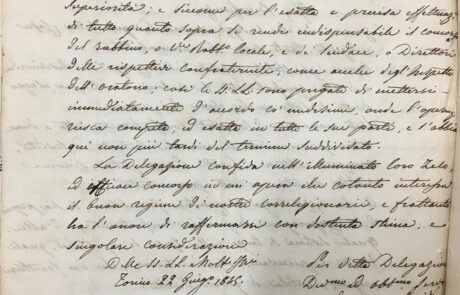 Superiorità; e siccome per l'esatta e precisa effettuaz.
di tutto quanto sopra si rende indispensabile il concorso
del rabbino, o Locale, e de' sindaci, o Direttori
delle rispettive confraternite, come anche degl'Ispettori
dell'oratorio, così le SS. LL. sono pregate di mettersi
immediatamente d'accordo co' medesimi, onde l'opera
riesca compita, ed esatta in tutte le sue parti, e s'abbia
qui non più tardi del termine suddivisato.
La Delegazione confida nell'illuminato loro Zelo,
ed efficace concorso in un'opera che cotanto interessa
il buon regime de' nostri correligionari, e frattanto
ha l'onore di raffermarsi con distinta stima, e
singolare considerazione
Delle SS. LL. Molt.
Torino 22 Giug. 1845.
Per detta Delegazione
Dev.mo ed obb.mo Serv.